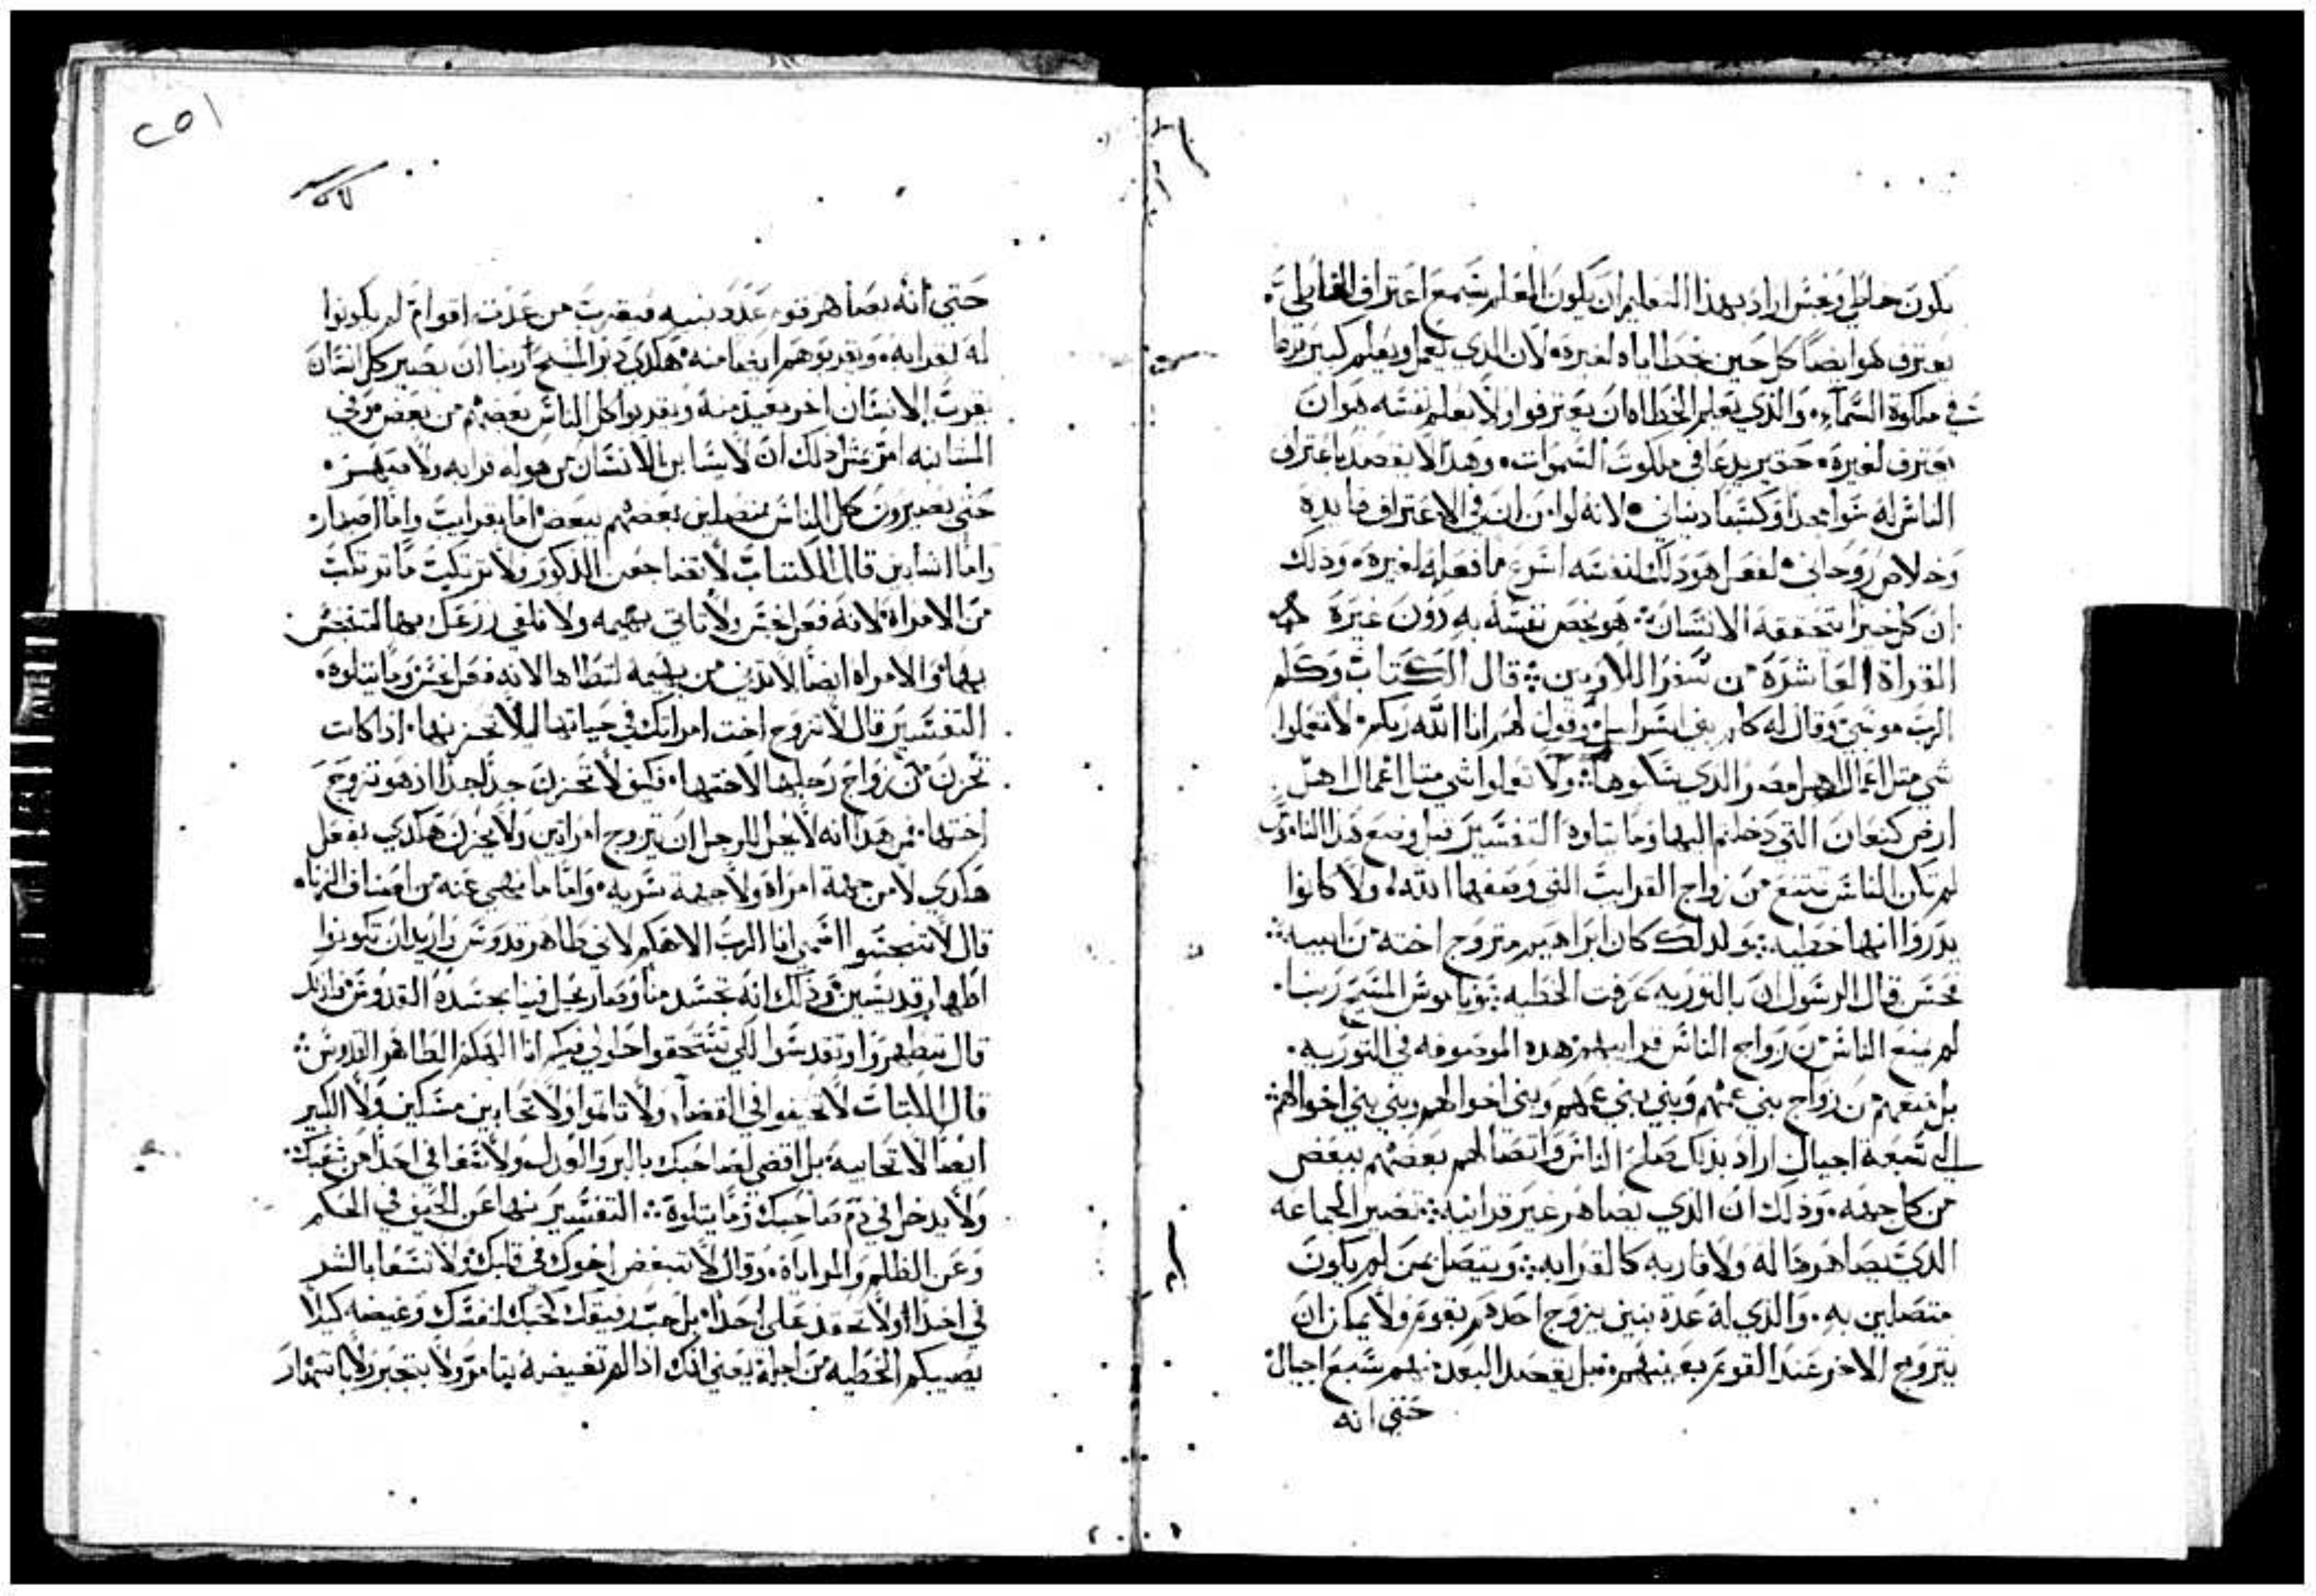 يكون خاطي وغش اراد بهذا التعليم ان يكون المعلم يسمع اعتراف الخاطي
يعترف هو ايضًا كل حين بخطاياه لغيره لان الذي يعمل ويعلم كبير يدعا
في ملكوة السماء والذي يعلم الخطاه ان يعترفوا ولا يعلم نفسه هو ان
يعترف لغيره حتى يدعا في ملكوت السموات وهذا لا يقصد باعتراف
الناس له سوا مجدًا وكسبًا دنياني لانه لو امن ان في الاعتراف فايده
وخلاص روحاني لفعل هو ذلك لنفسه اسرع مما فعله لغيره وذلك
ان كل خير يتحققه الانسان هو يخص نفسه به دون غيره
القراة العاشرة من سفر اللاويين قال الكتاب وكلم
الرب موسى وقال له كلم بني اسراييل وقول لهم انا الله ربكم لا تعملوا
شي مثل اعمال اهل مصر الذي سكنوها ولا تعملوا شي مثل اعمال اهل
ارض كنعان التي دخلتم اليها وما يتلوه التفسير قبل وضع هذا الناموس
لم تكن الناس تمتنع من زواج القرايب التي وصفها الله ولا كانوا
يدروا انها خطيه ولذلك كان ابراهيم متزوج اخته من ابيه
فحسن قال الرسول ان بالتوريه عرفت الخطيه وناموس المسيح ربنا
لم يمنع الناس من زواج الناس قرايبهم هذه الموصوفه في التوريه
بل منعهم من زواج بني عمهم وبني بني عمهم وبني اخوالهم وبني بني اخوالهم
الى سبعة اجيال اراد بذلك صلح الناس واتصالهم بعضهم ببعض
من كل جهه وذلك ان الذي يصاهر غير قرايبه تصير الجماعه
الذي يصاهرها له ولاقاربه كالقرابه ويتصل بمن لم يكون
متصلين به والذي له عدة بنين يزوج احدهم بقوم ولا يمكن ان
يتزوج الاخر عند القوم بعينهم قبل بعد سبع اجيال
حتى انه
٢٥١
حتى انه يصاهر قوم عدد بنيه فيقرب من عدت اقوام لم يكونوا
له اقرابه ويقربوهم ايضا منه هكذى دبر المسيح ربنا ان يصير كل انسان
يقرب الانسان اخر بعيد منه ويقربوا كل الناس بعضهم من بعض وفي
امر مثل ذلك ان لا الانسان من هو له قرابه ولا
حتى يصيرون كل الناس متصلين بعضهم ببعض اما بقرايب واما اصهار
واما قال الكتاب لا تضاجعن الذكور ولا تركبت ما تركبت
من الامراة لانه فعل غش ولا تاتي بهيمه ولا تلقي زرعك فيها لتتنجس
بها والامراه ايضا لا تدني من بهيمه لتطاها لانه فعل غش وما يتلوه
التفسير قال لا تزوج اخت امراتك في حياتها ليلا تحزنها اذا كانت
تحزن من زواج رجلها لاختها فكيف لا تحزن جدًا جدًا اذ هو تزوج
اختها فمن هذا انه لا يحل للرجل ان يتزوج امراتين ولا يحزن هكذى يفعل
هكذى لا من جهة امراة ولا جهة سريه واما ما نهى عنه من اصناف الزناه
قال لا تنجسوا اسمي انا الرب الاهكم لاني طاهر قدوس واريد ان تكونوا
اطهار قديسين وذلك انه تجسد منا وصار يحل فينا بجسده القدوس
قال تطهروا وتقدسوا لكي تستحقوا حلولي فيكم انا الهكم الطاهر القدوس
قال الكتاب لا تحيفوا في القضا ولا تاثموا ولا تحابين مسكين ولا الكبير
ايضا لا تحابيه بل اقضي لصاحبك بالبر والعدل ولا تسعا في احد من شعبك
ولا يدخل في دم صاحبك وما يتلوه التفسير نها عن الحيف في الحكم
وعن الظلم والمراياة وقال لا تبغض اخوك في قلبك ولا تسعا بالشر
في احدا ولا تحقد على احدا بل حب رفيقك كحبك لنفسك كيلا
يصيبكم الخطيه من اجله يعني انك اذا لم